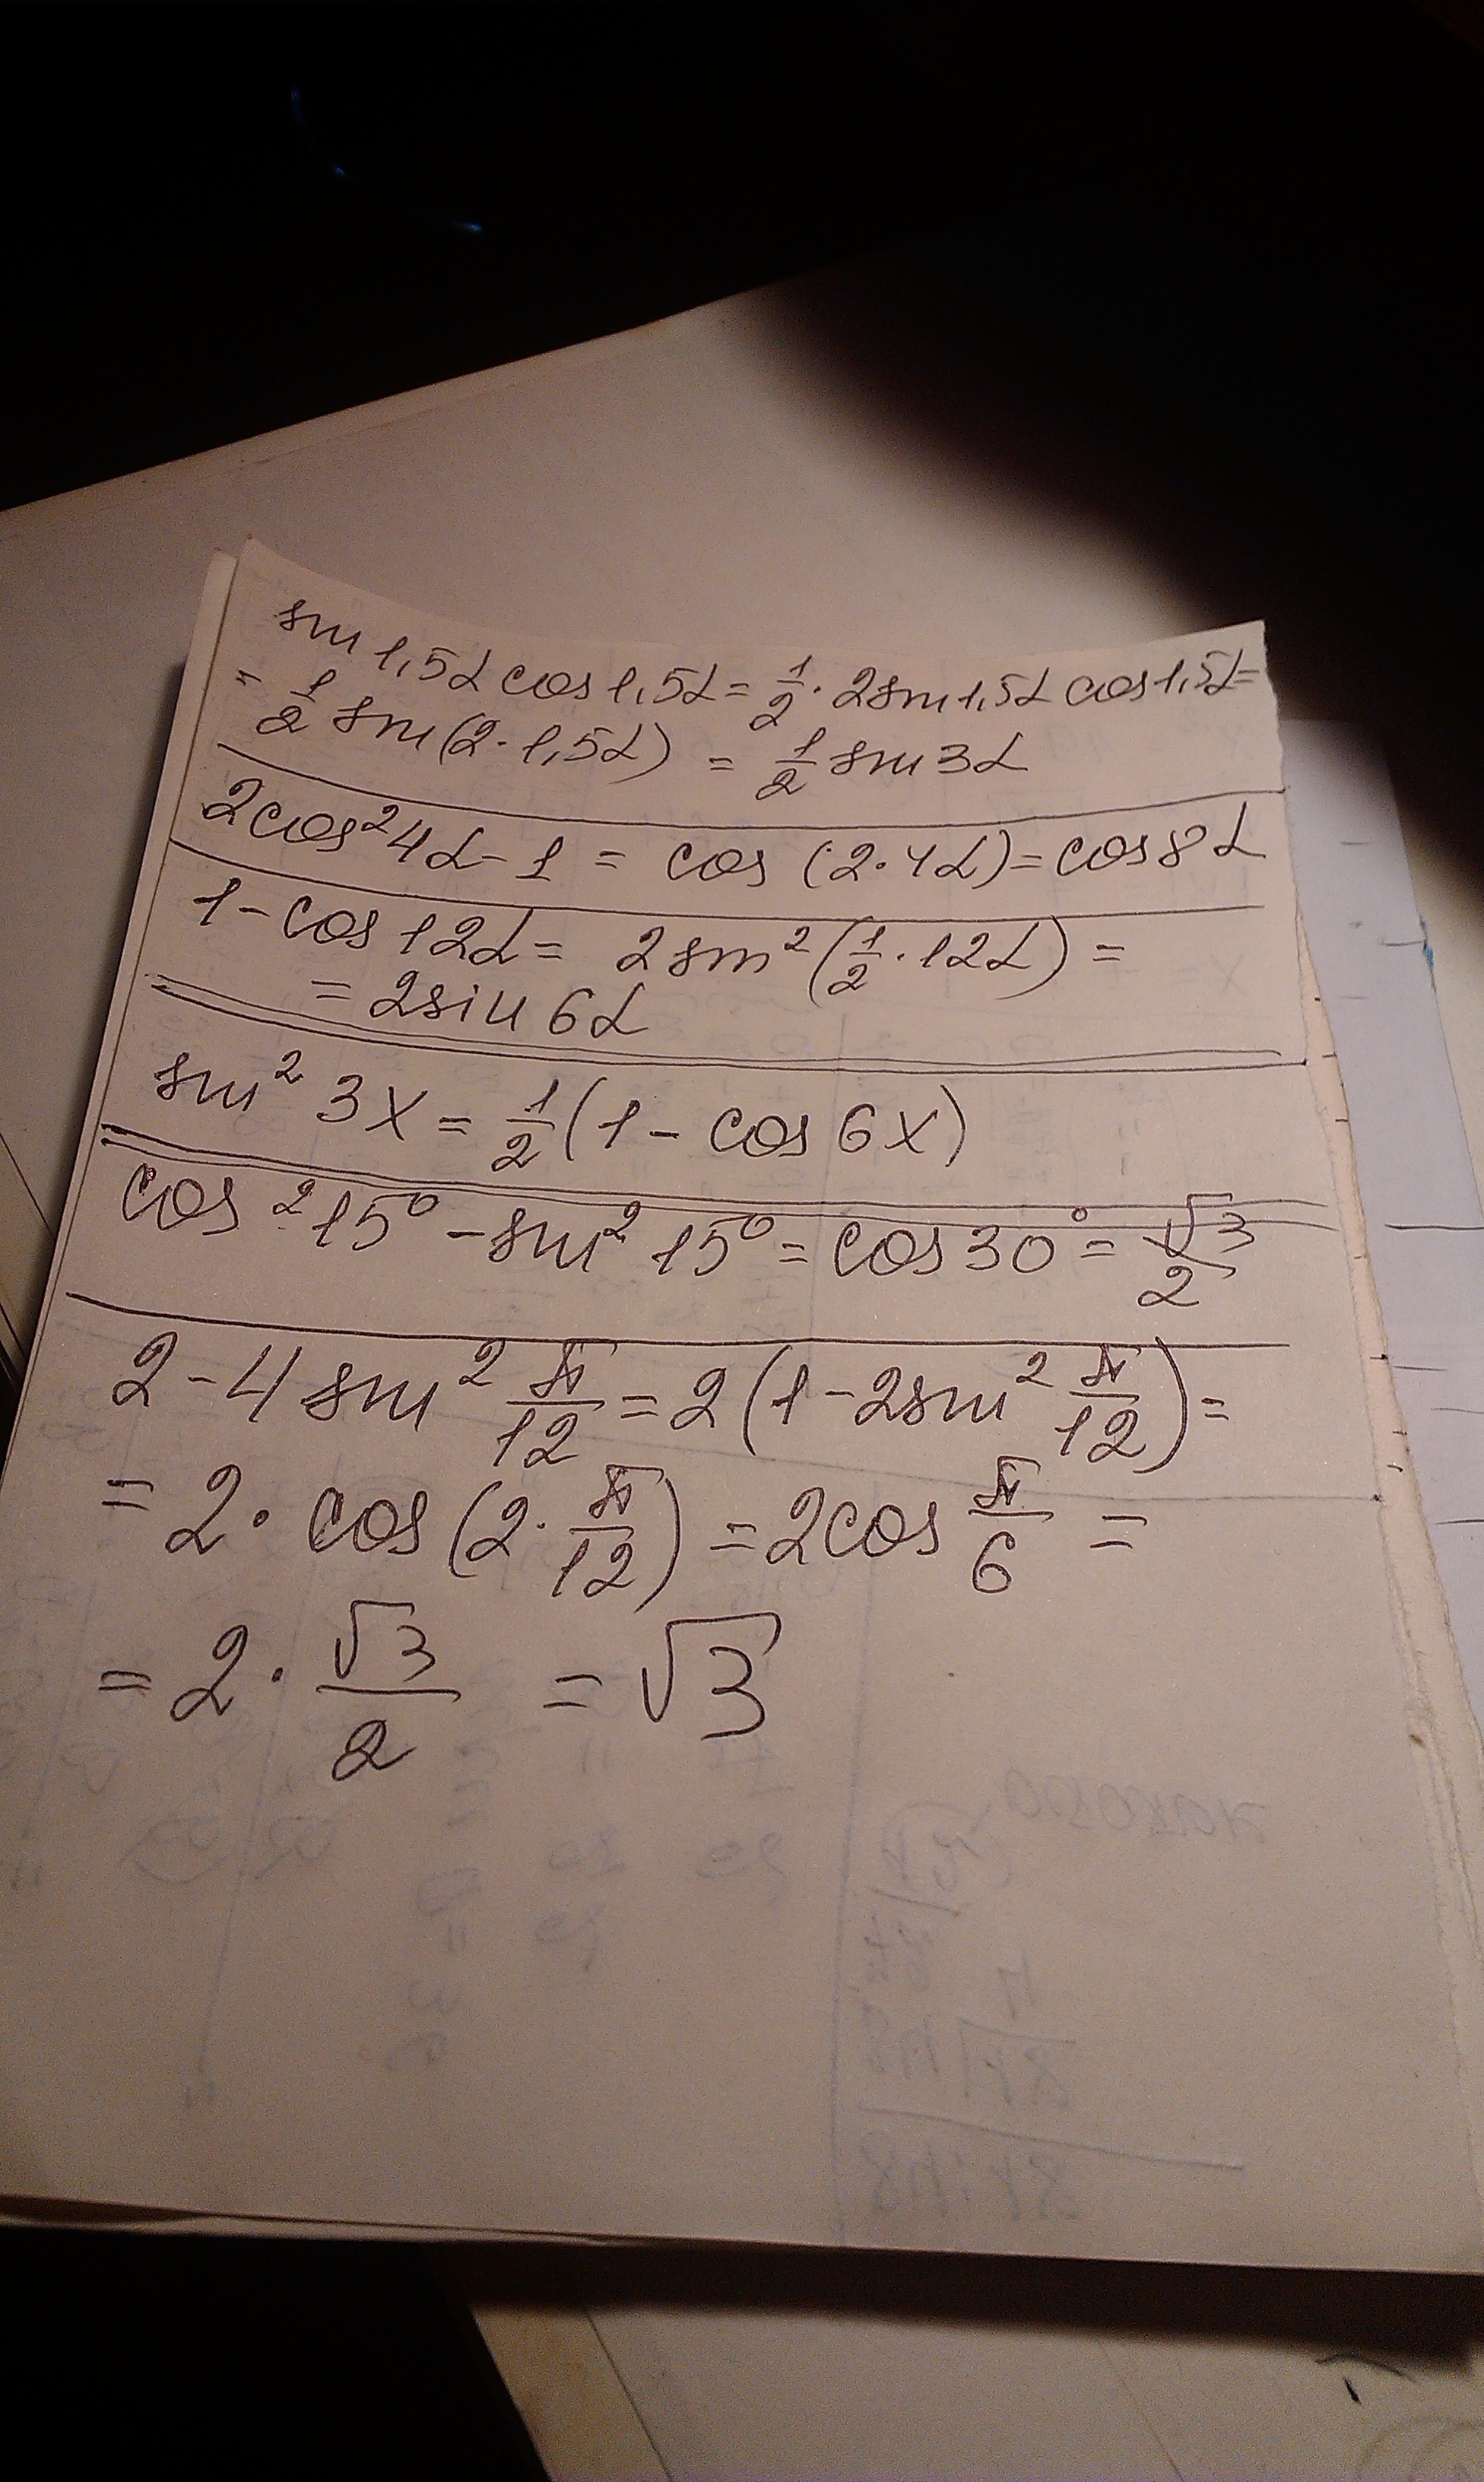 sin 1,5α cos 1,5α = 1/2 · 2 sin 1,5α cos 1,5α =
= 1/2 sin (2 · 1,5α) = 1/2 sin 3α
2 cos² 4α - 1 = cos (2 · 4α) = cos 8α
1 - cos 12α = 2 sin² (1/2 · 12α) =
= 2 sin 6α
sin² 3x = 1/2 (1 - cos 6x)
cos² 15° - sin² 15° = cos 30° = √3/2
2 - 4 sin² π/12 = 2 (1 - 2 sin² π/12) =
= 2 · cos (2 · π/12) = 2 cos π/6 =
= 2 · √3/2 = √3